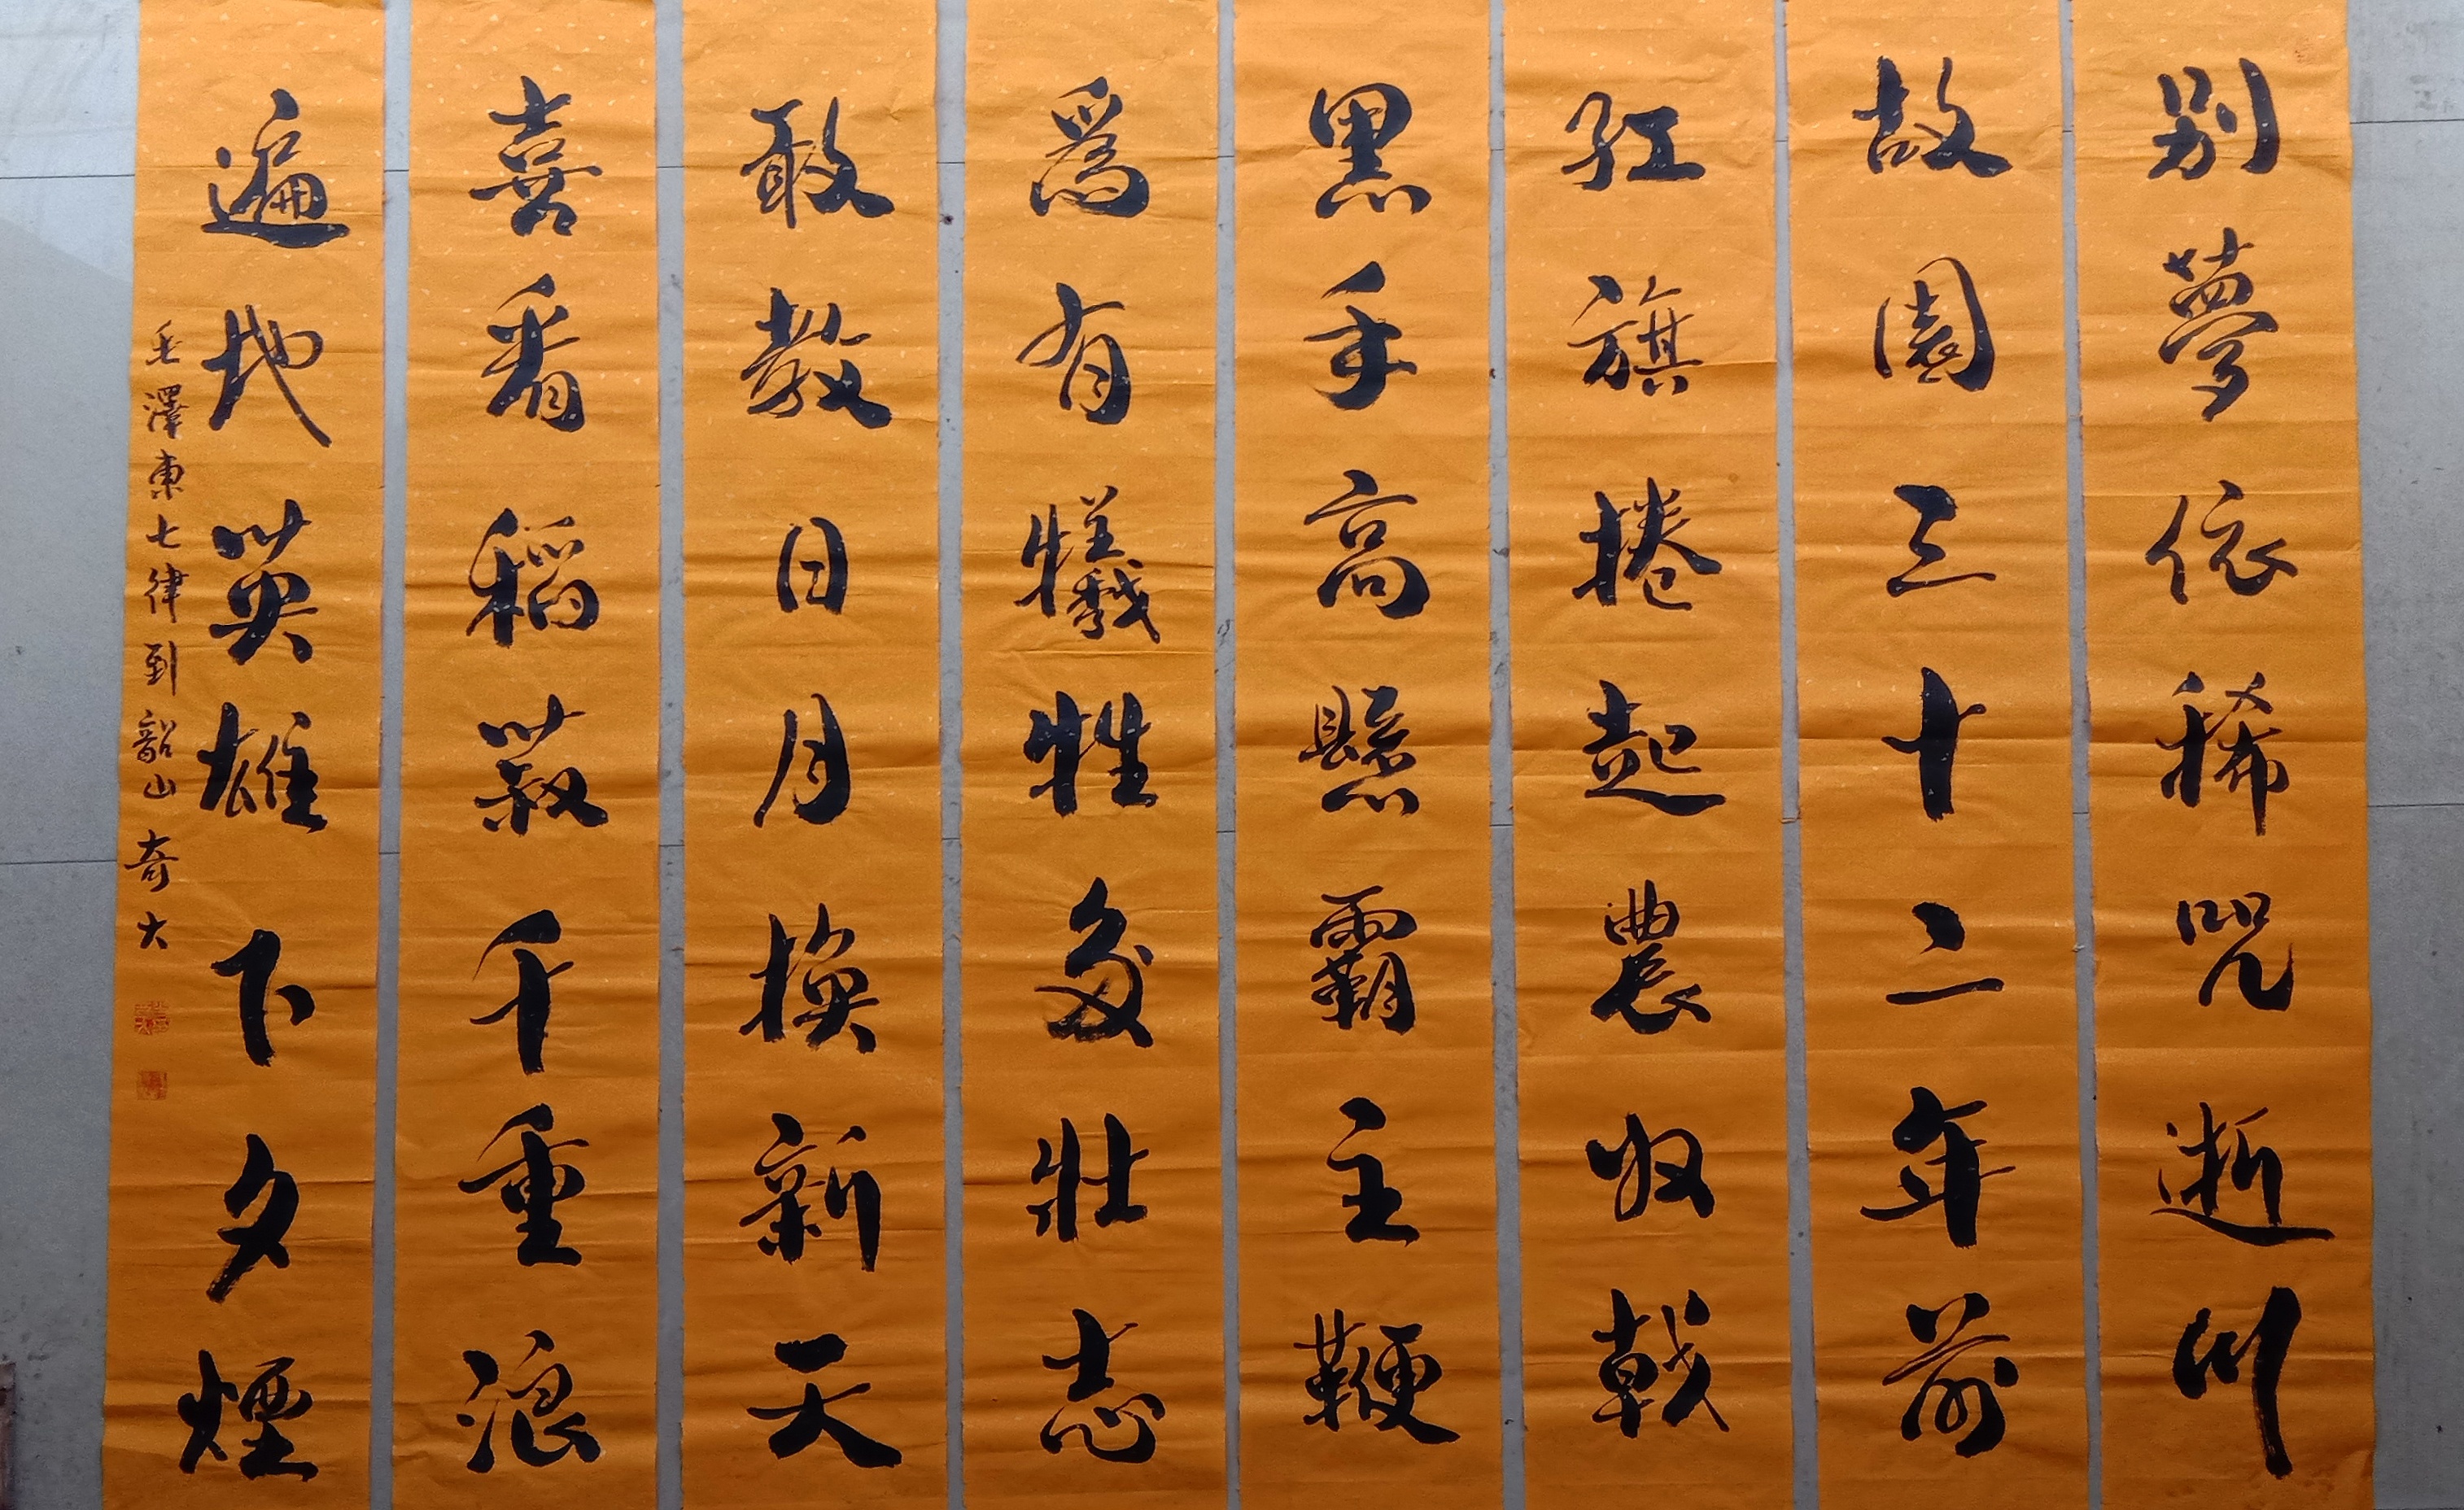 别夢依稀咒逝川
故園三十二年前
紅旗捲起農奴戟
黑手高懸霸主鞭
爲有犧牲多壯志
敢教日月換新天
喜看稻菽千重浪
遍地英雄下夕煙
毛澤東七律到韶山奇大